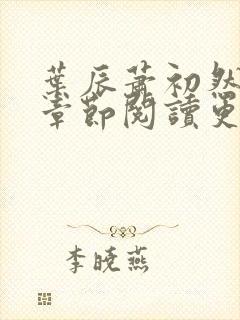 葉辰蕭初然
章節閱讀更
李曉燕